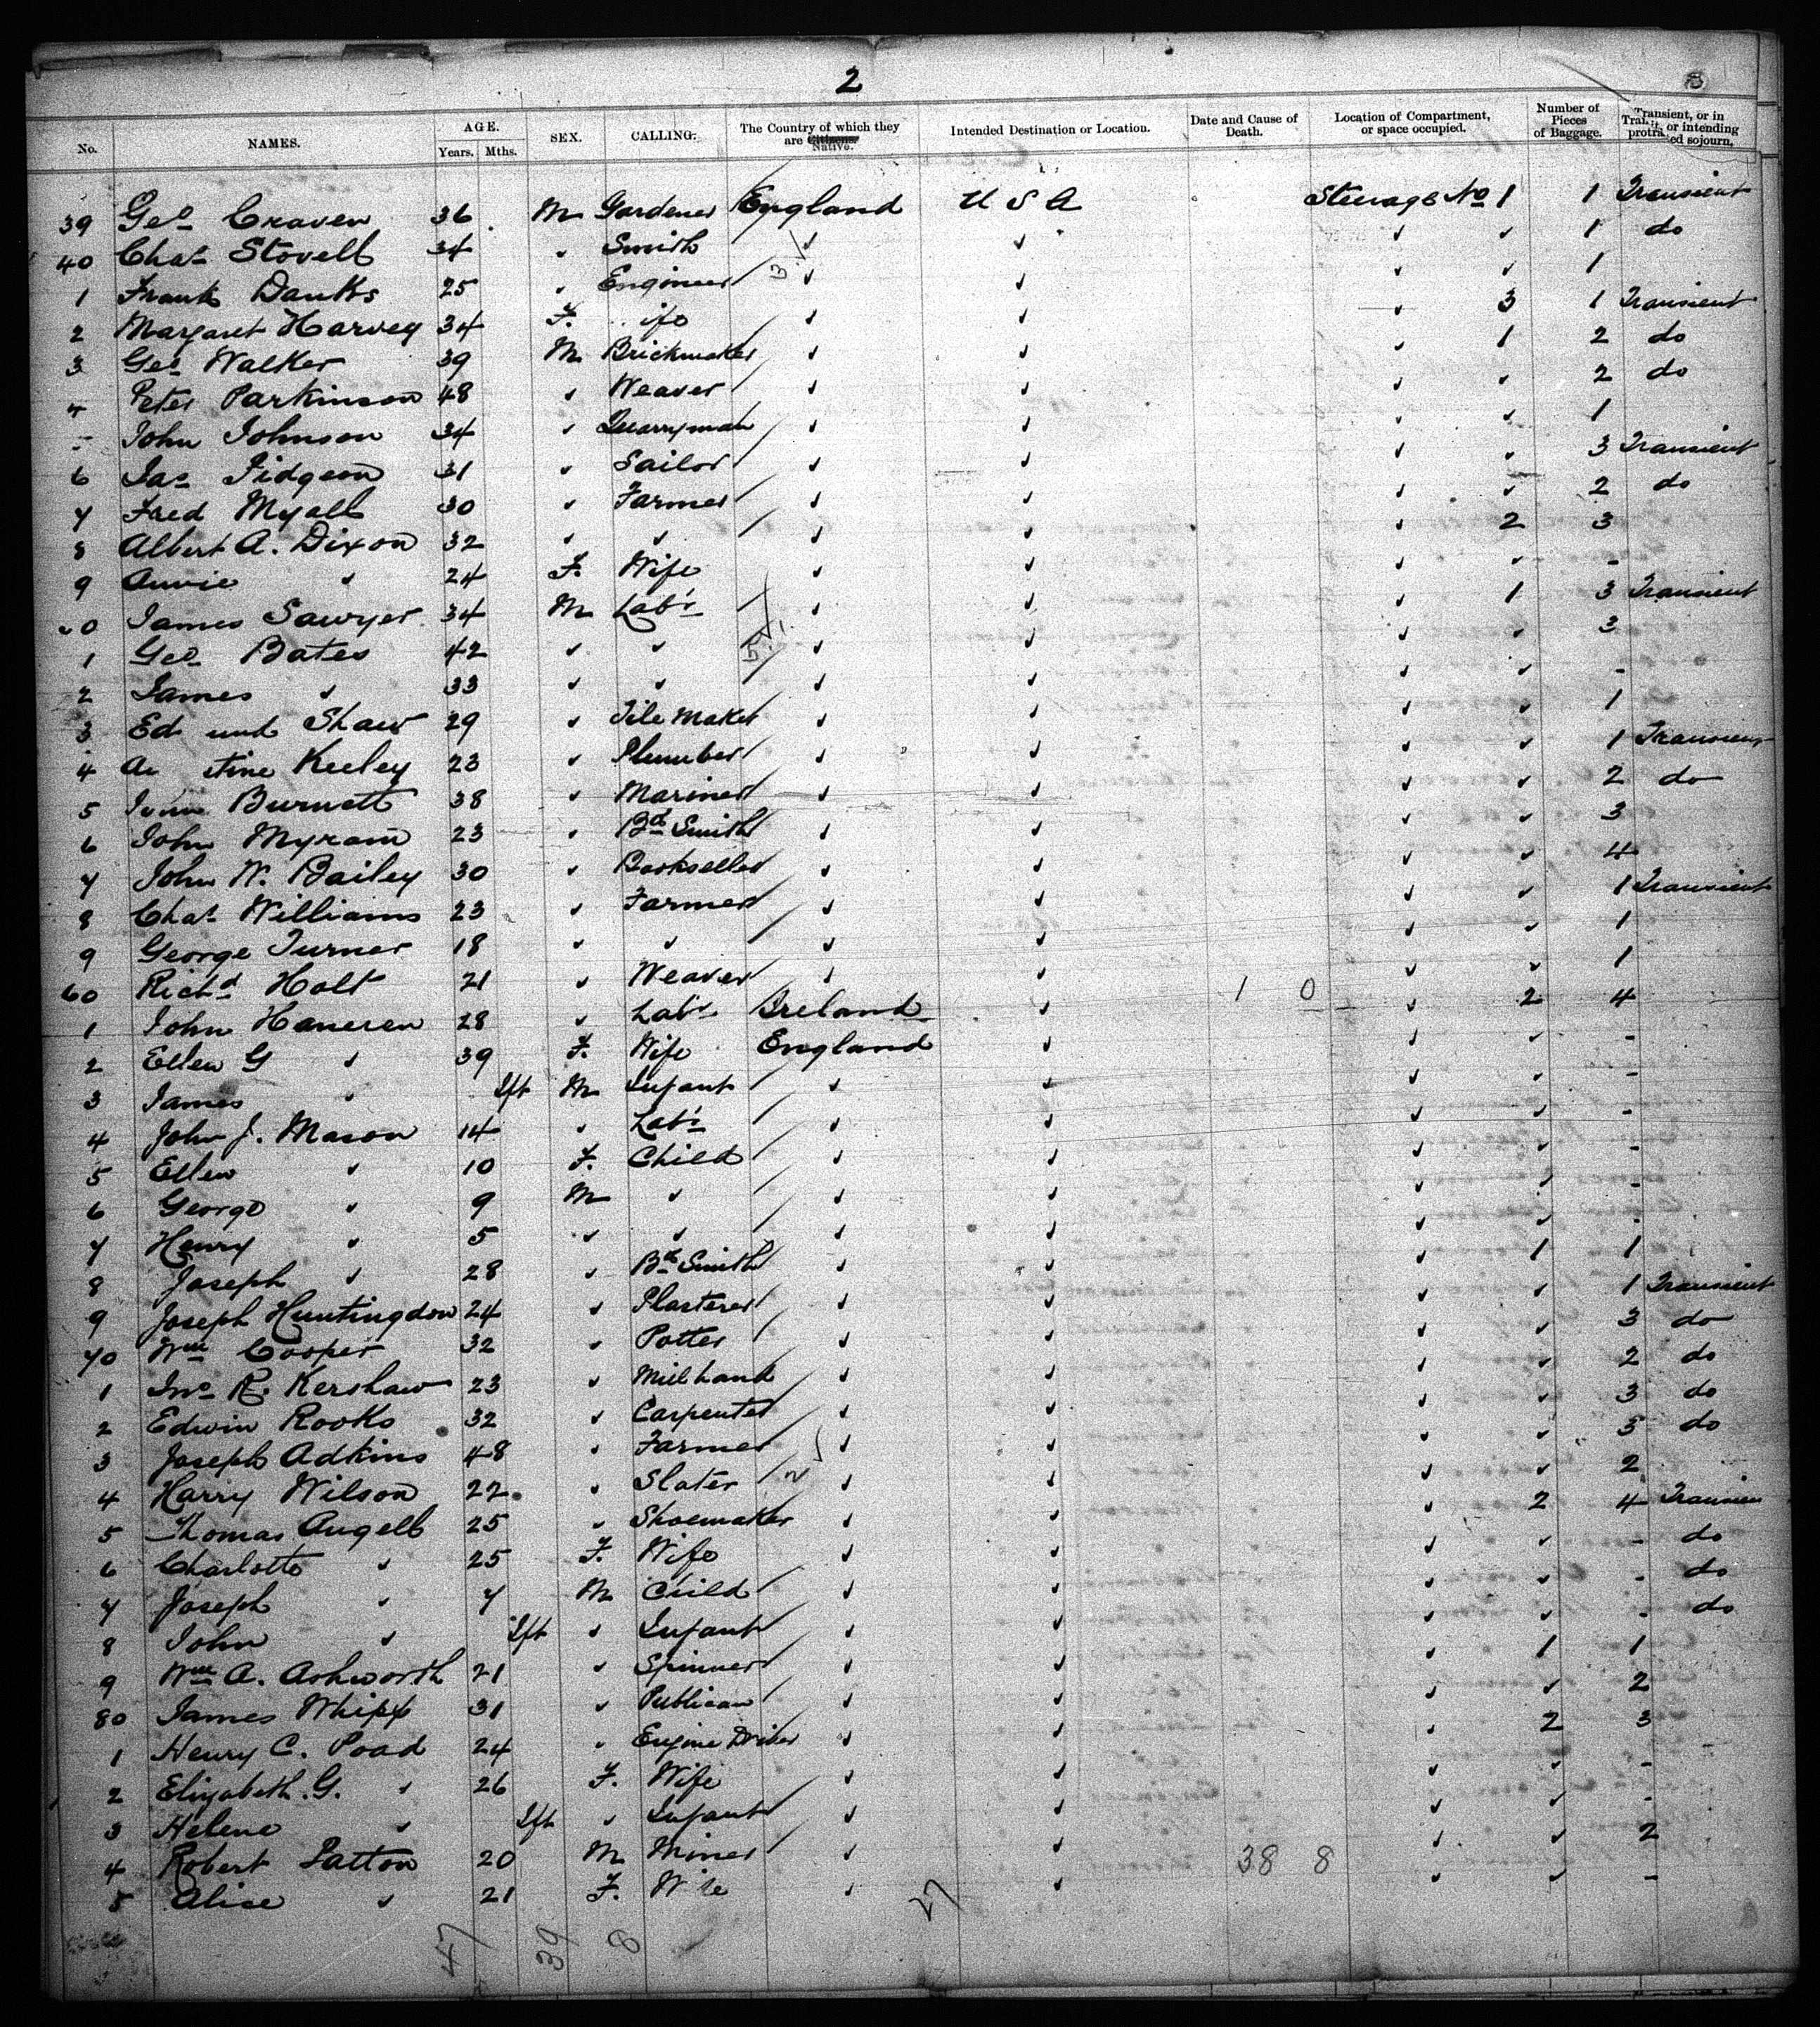 2
No. NAMES. AGE. Years. Mths. SEX. CALLING. The Country of which they are Citizens. Native. Intended Destination or Location. Date and Cause of Death. Location of Compartment, or space occupied. Number of Pieces of Baggage. Transient, or in Transit, or intending protracted sojourn.
39 Geo Craven 36 M Gardener England U S A Steerage No 1 1 Transient
40 Chas Stovell 34 ✓ Smith ✓ ✓ ✓ ✓ 1 do
1 Frank Danks 25 ✓ Engineer ✓ ✓ ✓ ✓ 1
2 Margaret Harvey 34 F. ife ✓ ✓ ✓ 3 1 Transient
3 Geo Walker 39 M Brickmaker ✓ ✓ ✓ 1 2 do
4 Peter Parkinson 48 ✓ Weaver ✓ ✓ ✓ ✓ 2 do
John Johnson 34 ✓ Quarryman ✓ ✓ ✓ 1
6 Jas Pidgeon 31 ✓ Sailor ✓ ✓ ✓ ✓ 3 Transient
7 Fred Myall 30 ✓ Farmer ✓ ✓ ✓ ✓ 2 do
8 Albert A. Dixon 32 ✓ ✓ ✓ ✓ ✓ 2 3
9 Annie ✓ 24 F. Wife ✓ ✓ ✓ ✓ -
50 James Sawyer 34 M Labr ✓ ✓ ✓ 1 3 Transient
1 Geo Bates 42 ✓ ✓ ✓ ✓ ✓ ✓ 3
2 James ✓ 33 ✓ ✓ ✓ ✓ ✓ ✓ -
3 Ed und Shaw 29 ✓ Tile Maker ✓ ✓ ✓ ✓ 1
4 Au stine Keeley 23 ✓ Plumber ✓ ✓ ✓ ✓ 1 Transient
5 Burnett 38 ✓ Mariner ✓ ✓ ✓ ✓ 2 do
6 John Myram 23 ✓ Bk Smith ✓ ✓ ✓ ✓ 3
7 John W. Bailey 30 ✓ Bookseller ✓ ✓ ✓ ✓ 4
8 Chas Williams 23 ✓ Farmer ✓ ✓ ✓ ✓ 1 Transient
9 George Turner 18 ✓ ✓ ✓ ✓ ✓ ✓ 1
60 Richd Holt 21 ✓ Weaver ✓ ✓ ✓ ✓ 1
1 John Haneren 28 ✓ Labr Ireland ✓ 1 0 ✓ 2 4
2 Ellen G ✓ 39 F. Wife England ✓ ✓ ✓ -
3 James ✓ Ift M Infant ✓ ✓ ✓ ✓ -
4 John J. Mason 14 ✓ Labr ✓ ✓ ✓ ✓ -
5 Ellen ✓ 10 F. Child ✓ ✓ ✓ ✓ -
6 George ✓ 9 M ✓ ✓ ✓ ✓ ✓ -
7 Henry ✓ 5 ✓ ✓ ✓ ✓ ✓ ✓ -
8 Joseph ✓ 28 ✓ Bk Smith ✓ ✓ ✓ 1 1
9 Joseph Huntingdon 24 ✓ Plasterer ✓ ✓ ✓ ✓ 1 Transient
70 Wm Cooper 32 ✓ Potter ✓ ✓ ✓ ✓ 3 do
1 Jno R. Kershaw 23 ✓ Millhand ✓ ✓ ✓ ✓ 2 do
2 Edwin Rooks 32 ✓ Carpenter ✓ ✓ ✓ ✓ 3 do
3 Joseph Adkins 48 ✓ Farmer ✓ ✓ ✓ ✓ 3 do
4 Harry Wilson 22 ✓ Slater ✓ ✓ ✓ ✓ 2
5 Thomas Angell 25 ✓ Shoemaker ✓ ✓ ✓ 2 4 Transien
6 Charlotte ✓ 25 F. Wife ✓ ✓ ✓ ✓ - do
7 Joseph ✓ 7 M Child ✓ ✓ ✓ ✓ - do
8 John ✓ Ift ✓ Infant ✓ ✓ ✓ ✓ - do
9 Wm A. Ashworth 21 ✓ Spinner ✓ ✓ ✓ 1 1
80 James Whipp 31 ✓ Publican ✓ ✓ ✓ ✓ 2
1 Henry C. Poad 24 ✓ Engine Driver ✓ ✓ ✓ 2 3
2 Elizabeth G. ✓ 26 F. Wife ✓ ✓ ✓ ✓ -
3 Helene ✓ Ift ✓ Infant ✓ ✓ ✓ ✓ -
4 Robert Patton 20 M Miner ✓ ✓ 38 8 ✓ ✓ 2
5 Alice ✓ 21 F. W fe ✓ ✓ ✓ ✓ -
47 39 8 27